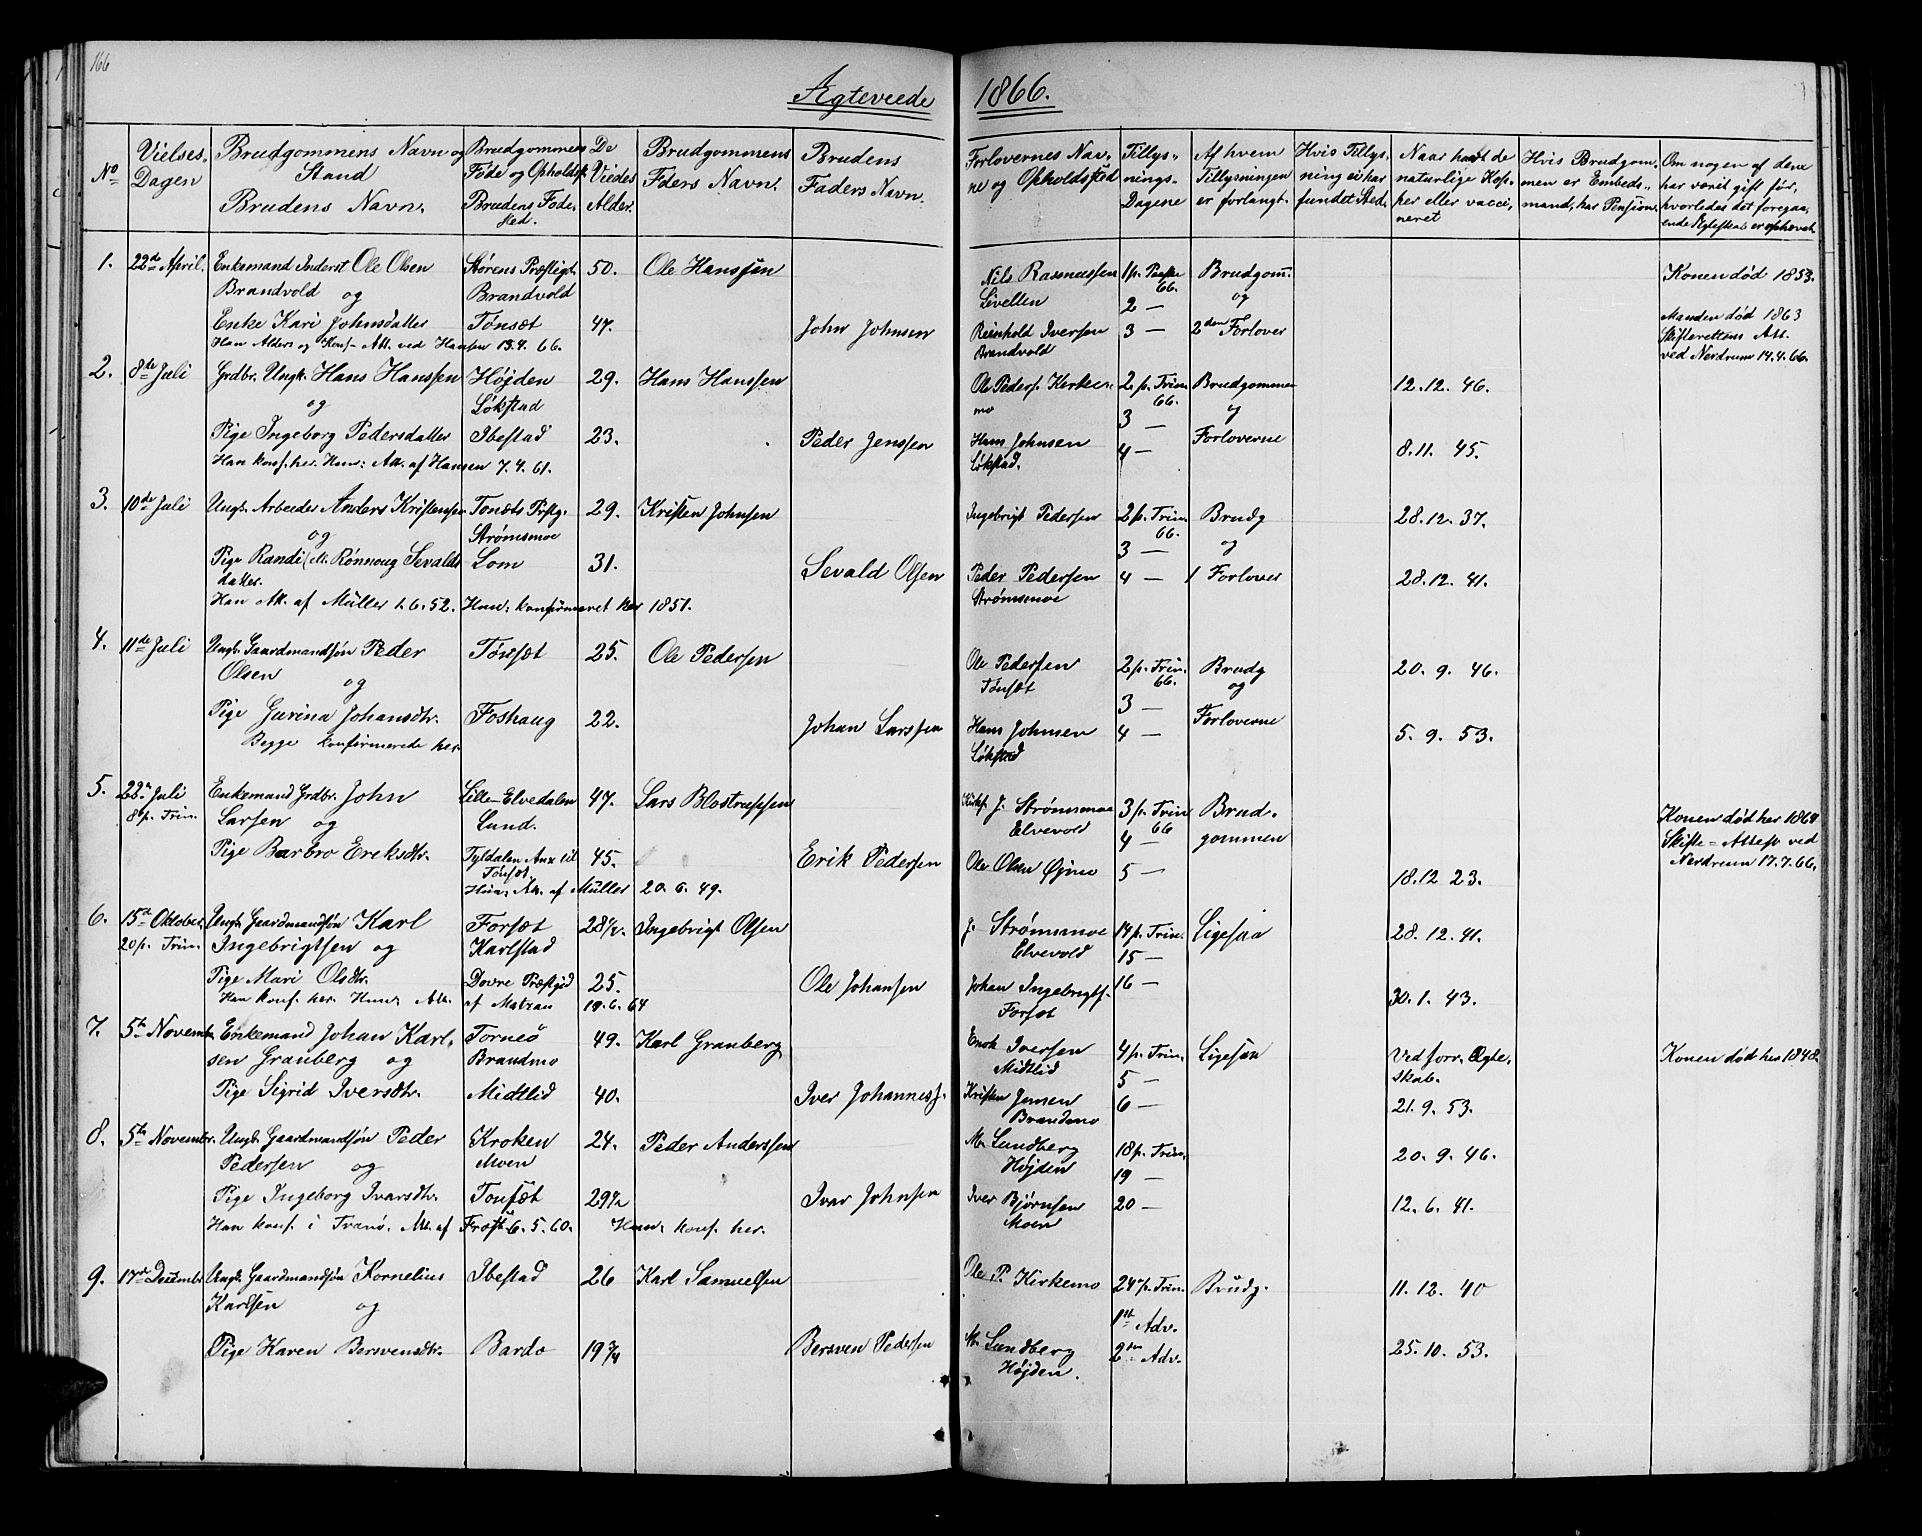 166
Ægteviede 1866.
No
Vielses-Dagen
Brudgommens Navn og Stand
Brudens Navn.
Brudgommens Føde og Opholdsst.
Brudens Fødested.
De Viedes Alder.
Brudgommens Faders Navn.
Brudens Faders Navn.
Forlovernes Navne og Opholdsted
Tillysnings-Dagene
Af hvem Tillysningen er forlangt.
Hvis Tillysning ei har fundet Sted.
Naar havt de naturlige Kopper eller vaccineret
Hvis Brudgommen er Embedsmand, har Pension.
Om nogen af dem har været gift før, hvorledes det foregaaende Ægteskab er ophævet.
1. 22de April. Enkemand Inderst Ole Olsen Størens Præstegt. 50. Ole Hanssen Nils Rasmussen 1 p. Paaske 66. Brudgom. Konen død 1853.
Brandvold og Brandvold Livellen 2 — og
Enke Kari Johnsdatter Tönsæt 47. John Johnsen Reinhold Iversen 3 — 2den Forlover Manden død 1863
Han Alders og Konf- Att. ved Hansen 13.4.66. Brandvold Skifterettens Att. ved Nordrum 14.4.66.
2. 8de Juli Grdbr. Ungk. Hans Hanssen Højden 29. Hans Hanssen Ole Peders. Kirkemo 2 p. Trin. 66. Brudgommen 12.12.46.
og Løkstad 3 — og
Pige Ingeborg Pedersdatter Ibestad 23. Peder Jenssen Hans Johnsen 4 — Forloverne 8.11.45.
Han konf. her. Hun: Att. af Hansen 7.4.61. Løkstad.
3. 10de Juli Ungk. Arbeider Anders Kristensen Tonsæts Præstg. 29. Kristen Johnsen Ingebrigt Pedersen 2 p. Trin. 66. Brudg 28.12.37.
og Strømsmoe 3 — og
Pige Randi (ell. Rønnoug Sevalds Lom 31. Sevald Olsen Peder Pedersen 4 — 1 Forlover 28.12.41.
datter. Strømsmoe
Han Att. af Müller 1.6.52. Hun: konfirmeret her 1851.
4. 11de Juli Ungk. Gaardmandsøn Peder Tönsæt 25. Ole Pedersen Ole Pedersen 2 p. Trin. 66. Brudg 20.9.46.
Olsen og Tönsæt 3 — og
Pige Gurina Johansdtr. Foshaug 22. Johan Larssen Hans Johnsen 4 — Forloverne 5.9.53.
Begge konfirmerede her Løkstad
5. 22de Juli Enkemand Grdbr. John Lille-Elvedalen 47. Lars Blostrupsen Kirkes. J. Strømsmoe 3 p. Trin 66 Brud- Konen død her 1864
8 p. Trin. Larsen og Lund. Elvevold 4 — gommen Skifte-Attest ved
Pige Barbro Eriksdtr. Tyldalen Anx til Tönsæt. 45. Erik Pedersen Ole Olsen Øjmo 5 — 18.12 23. Nordrum 17.7.66.
Hun: Att. af Müller 20.6.49.
6. 15de Oktober. Ungk. Gaardmandsøn Karl Forsæt 28½. Ingebrigt Olsen J. Strømsmoe 14 p. Trin. Ligesaa 28.12.41.
20 p. Trin. Ingebrigtsen og Karlstad Elvevold 15 —
Pige Mari Olsdtr. Dovre Præstgjd 25. Ole Johansen Johan Ingebrigts. 16 — 30.1.43.
Han konf. her. Hun: Att. af Matzau 19.6.64 Forsæt
7. 5te Novembr. Enkemand Johan Karl- Torneö 49. Karl Granberg Enok Iversen 4 p. Trin. Ligesaa Ved forr. Ægte- Konen død her 1848.
sen Granberg og Brandmo Midtlid 5 — skab.
Pige Sigrid Iversdtr. Midtlid 40. Iver Johanness. Kristen Jensen 6 — 21.9.53.
Brandmo
8. 5te Novembr. Ungk. Gaardmandsøn Peder Kroken 24. Peder Anderssen M. Lundberg 18 p. Trin. 20.9.46.
Pedersen og Moen Højden 19 —
Pige Ingeborg Ivarsdtr. Tonsæt 29½ Ivar Johnsen Iver Bjørnsen 20 — 12.6.41.
Han konf. i Tranø. Att. af Frost 6.5.60. Hun: konf. her. Moen
9. 17de Decembr Ungk. Gaardmandsøn Kornelius Ibestad 26 Karl Samuelsen Ole P. Kirkemo 24 p. Trin. Brudg. 11.12.40
Karlsen og 1ste Adv.
Pige Karen Bersvensdtr. Bardo 19¾ Bersven Pedersen M. Lundberg 2den Adv. 25.10.53.
Højden.